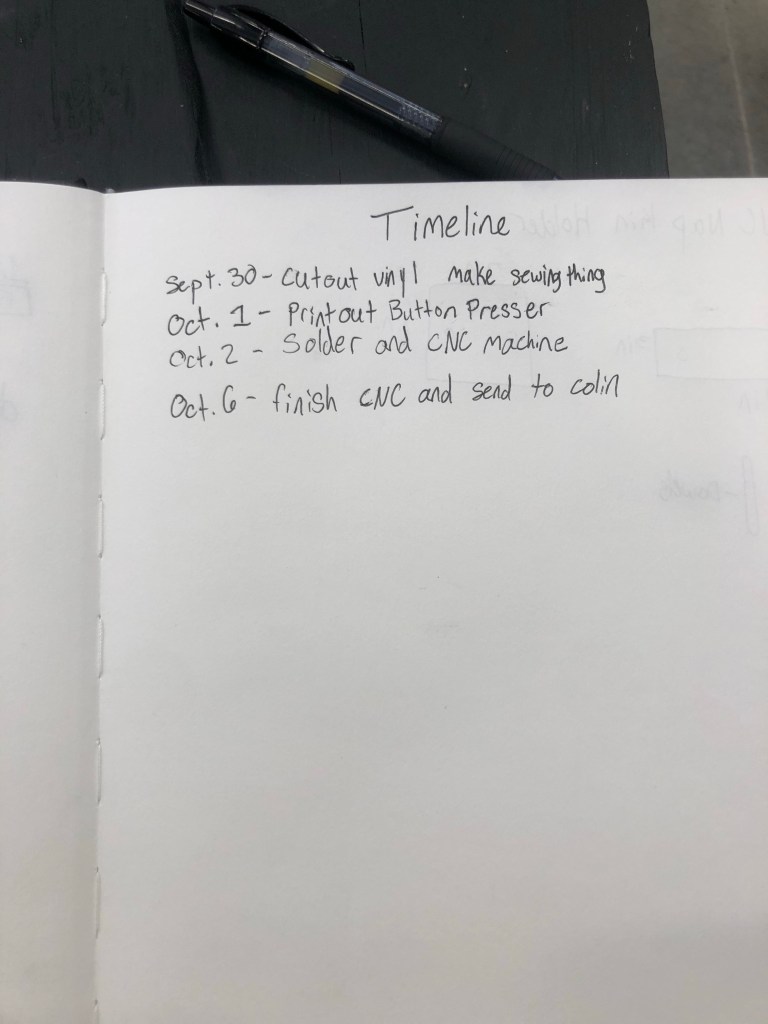 Timeline
Sept. 30 - Cutout vinyl make sewing thing
Oct. 1 - Printout Button Presser
Oct. 2 - Solder and CNC Machine
Oct. 6 - finish CNC and send to colin